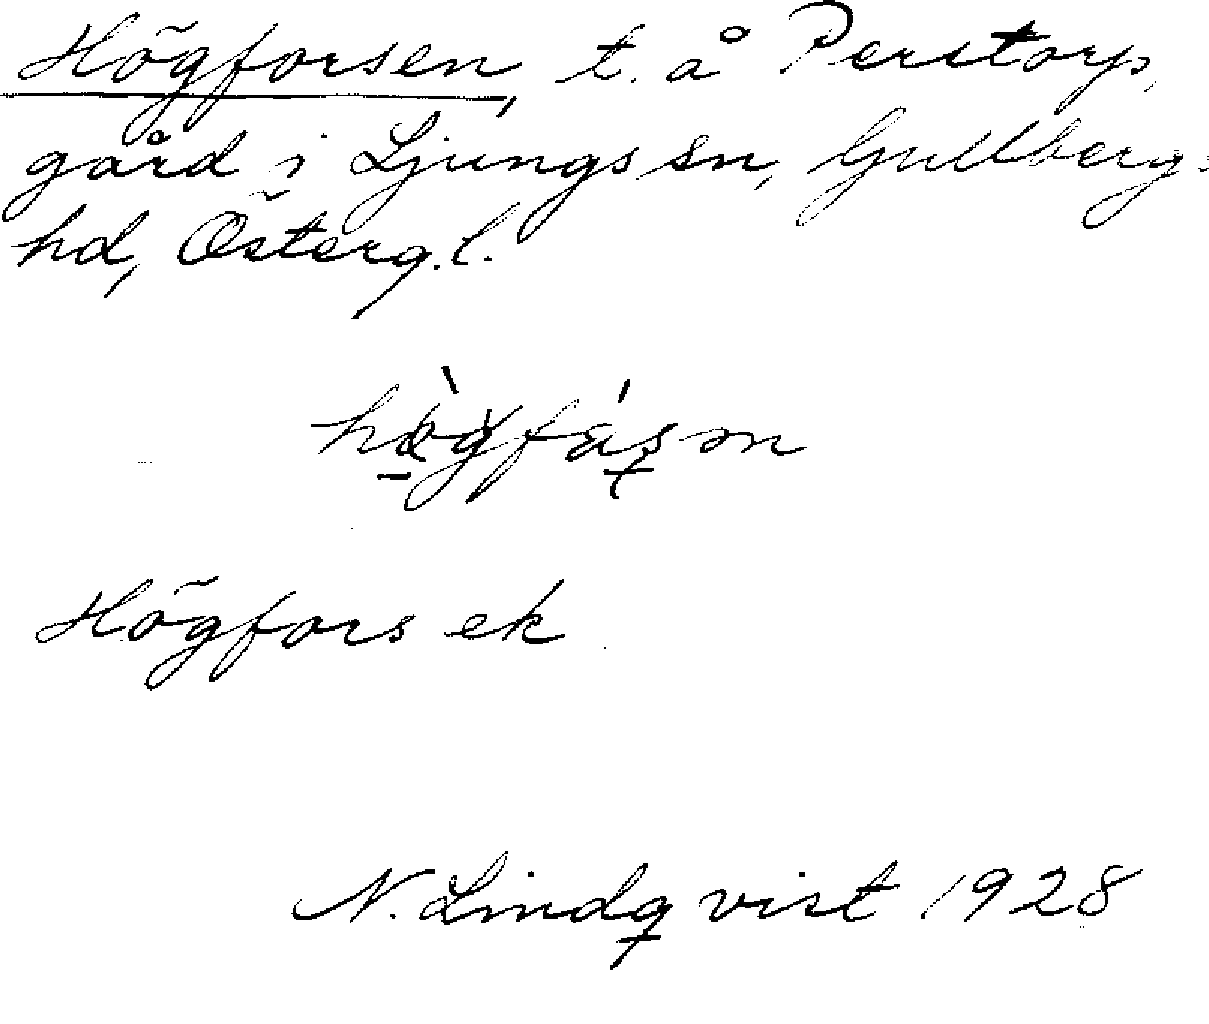 Högforsen, t. å Perstorp,
gård i Ljungs sn, Gullberg:
hd, Österg. l.
Högfors ek
N. Lindqvist 1928